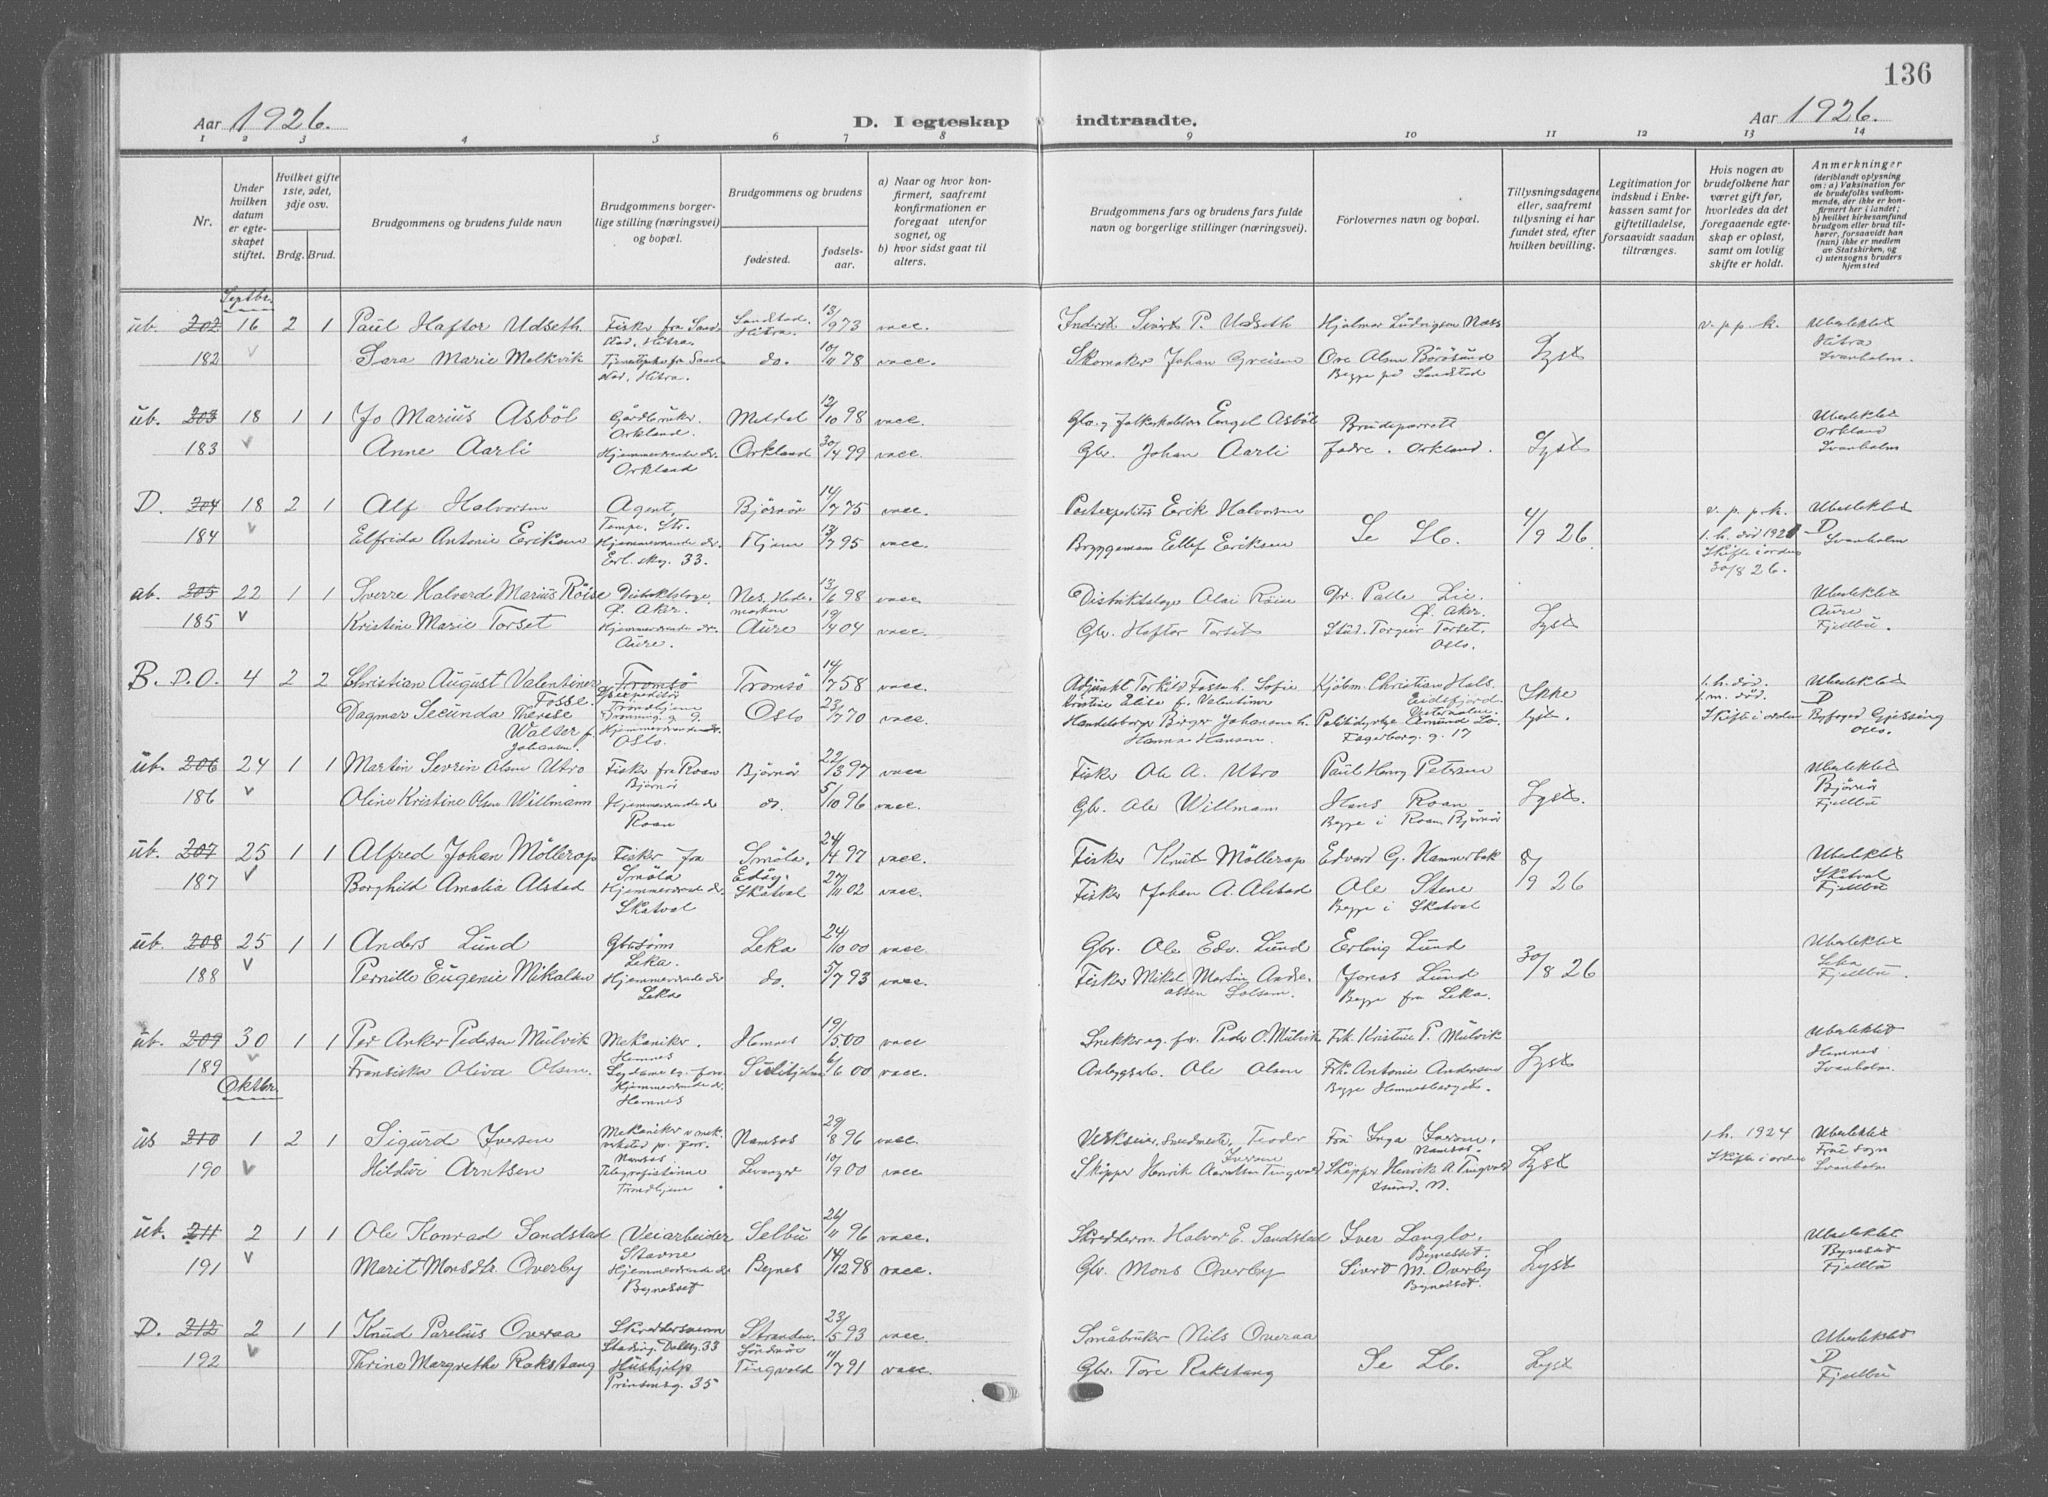 136
Aar 1926. D. I egteskap indtraadte. Aar 1926.
1 2 3 4 5 6 7 8 9 10 11 12 13 14
Nr.
Under hvilken datum er egteskapet stiftet.
Hvilket gifte 1ste, 2det, 3dje osv.
Brdg. Brud.
Brudgommens og brudens fulde navn
Brudgommens borgerlige stilling (næringsvei) og bopæl.
Brudgommens og brudens
fødested.
fødselsaar.
a) Naar og hvor konfirmert, saafremt konfirmationen er foregaat utenfor sognet, og
b) hvor sidst gaat til alters.
Brudgommens fars og brudens fars fulde navn og borgerlige stillinger (næringsvei).
Forlovernes navn og bopæl.
Tillysningsdagene eller, saafremt tillysning ei har fundet sted, efter hvilken bevilling.
Legitimation for indskud i Enkekassen samt for giftetilladelse, forsaavidt saadan tiltrænges.
Hvis nogen av brudefolkene har været gift før, hvorledes da det foregaaende egteskap er opløst, samt om lovlig skifte er holdt.
Anmerkninger (deriblandt oplysning om: a) Vaksination for de brudefolks vedkommende, der ikke er konfirmert her i landet; b) hvilket kirkesamfund brudgom eller brud tilhører, forsaavidt han (hun) ikke er medlem av Statskirken, og c) utensogns bruders hjemsted
Septbr.
ub. 202 16 2 1 Paul Haftor Udseth Fisker fra Sandstad, Hitra. Sandstad Hitra. 13/9 73 vacc. Indrst Sivert P. Udseth Hjalmar Ludvigsen Næss v. p. p. k. Ubeslektet
182 Sara Marie Melkvik Sandstad, Hitra. do. 10/11 78 vacc. Skomaker Johan Greisen Ove Olsen Börösund Begge på Sandstad Lyst Hitra Svanholm.
ub. 203 18 1 1 Jo Marius Asböl Gårdbruker Orkland. Meldal 12/10 98 vacc. Gbr. og Engel Asböl Brudeparrets Ubeslektet
183 Anne Aarli Hjemmeværende dr. Orkland Orkland 30/4 99 vacc. Gbr. Johan Aarli fædre. Orkland. Lyst Orkland Svanholm
D. 204 18 2 1 Alf Halvorsen Agent, Tempe, Str. Björnör 14/7 75 vacc. Postexpeditör Erik Halvorsen v. p. p. k. Ubeslektet
184 Elfrida Antonie Eriksen Hjemmeværende dr. Erl. skg. 33. 13/7 95 vacc. Bryggemann Ellef Eriksen Se Lb. 4/9 26 1. h. död 1921 Skifte i orden 30/8 26. D Svanholm
ab. 205 22 1 1 Sverre Halvard Marius Röise Distriktslæge, Ö. Aker. Nes. Hedemarken 13/6 98 vacc. Distriktslæge Olai Röise Dr. Palle Lie. Ö. Aker. Ubeslektet
185 Kristine Marie Torset Hjemmeværende dr. Aure. Aure 19/4 04 vacc. Gbr. Haftor Torset Stud. Torgeir Torset, Oslo. Lyst Aure Fjellbu.
B. D.O. 4 2 2 Christian August Valentiner Fosse. Tromsö Trondhjem Tromsö 14/7 58 vacc. Adjunkt Torkild Fosse h. Sofie Kristine Elise f. Valentiner Kjöbm. Christian Hals. Eidsfjord Vesteraalen. Ikke 1. h. död. 1. m. död. Ubeslektet
Dagmar Secunda Therese Walser f. Johansen. Hjemmeværende Oslo. Oslo 23/7 70 vacc. Handelsborger Birger Johansen h. Hanna Hansen. Fagerborg. g. 17 lyst. Skifte i orden D Byfoged Gjessing Oslo.
ub. 206 24 1 1 Martin Sevrin Olsen Utro Fisker fra Roan Björnör Björnör 22/3 97 vacc Fisker Ole A. Utro Paul Henry Petersen Ubeslektet
186 Oline Kristine Olsen Willmann Hjemmeværende dr. Roan do. 5/10 96 vacc. Gbr. Ole Willmann Hans Roan Begge i Roan Björnör Lyst. Björnör Fjellbu
ub. 207 25 1 1 Alfred Johan Möllerop Fisker fra Smöla Smöla, Edöy. 24/4 97 vacc. Fisker Knut Möllerop Edvard G. Hammerbak 8/9 26 Ubeslektet
187 Borghild Amalia Alstad Hjemmeværende dr. Skatval Skatval 27/11 02 vacc. Fisker Johan A. Alstad Ole Stene Begge i Skatval Skatval Fjellbu
ub. 208 25 1 1 Anders Lund Leka. Leka 24/10 00 vacc. Gbr. Ole Edv. Lund Erling Lund 30/8 26 Ubeslektet
188 Pernille Eugenie Mikalsen Hjemmeværende dr. Leka do. 5/7 93 vacc. Fisker Mikal Martin Andreassen Solsem. Jonas Lund Begge fra Leka. Leka Fjellbu.
ub. 209 30 1 1 Per Anker Pedersen Mulvik Mekaniker. Hemnes Hemnes 19/5 00 vacc Snekker og fv. Peder O. Mulvik Frk. Kristine P. Mulvik Ubeslektet
189 Fransiska Oliva Olsen. Hjemmeværende dr. Hemnes Sulitjelma 6/6 00 vacc. Anbygsb. Ole Olsen Frk. Antonie Andersen Begge Hemnesberget. Lyst Hemnes Svanholm.
Oktbr.
us 210 1 2 1 Sigurd Iversen Mekaniker v. mek. verksted Namsos. Namsos 29/8 96 vacc. Teodor Iversen Fru Inga Iversen, Namsos. 1. h. 1924 Ubeslektet
190 Hildur Arntsen Telegrafistinne Trondhjem Levanger 10/9 00 vacc. Skipper Henrik Arntsen Tingvold Skipper Henrik A. Tingvold Lyst Skifte i orden Frue sogn Svanholm
ub. 211 2 1 1 Ole Konrad Sandstad Veiarbeider Stavne Selbu 26/11 96 vacc. Skredderm. Halvor E. Sandstad Iver Langlo. Bynesset. Ubeslektet
191 Marit Monsdtr. Overby Hjemmeværende dr. Bynesset Bynes 14/12 98 vacc. Gbr. Mons Overby Sivert M. Overby Bynesset. Lyst Bynesset Fjellbu
D. 212 2 1 1 Knud Parelius Overaa Skreddersvenn 33 Stranden, Söndmöre 23/5 93 vacc. Småbruker Nils Overaa Ubeslektet
192 Thrine Margrethe Rakstang Hushjelp Prinsensg. 35 Tingvold 11/7 91 vacc. Gbr. Tore Rakstang Se Lb. Lyst D Fjellbu